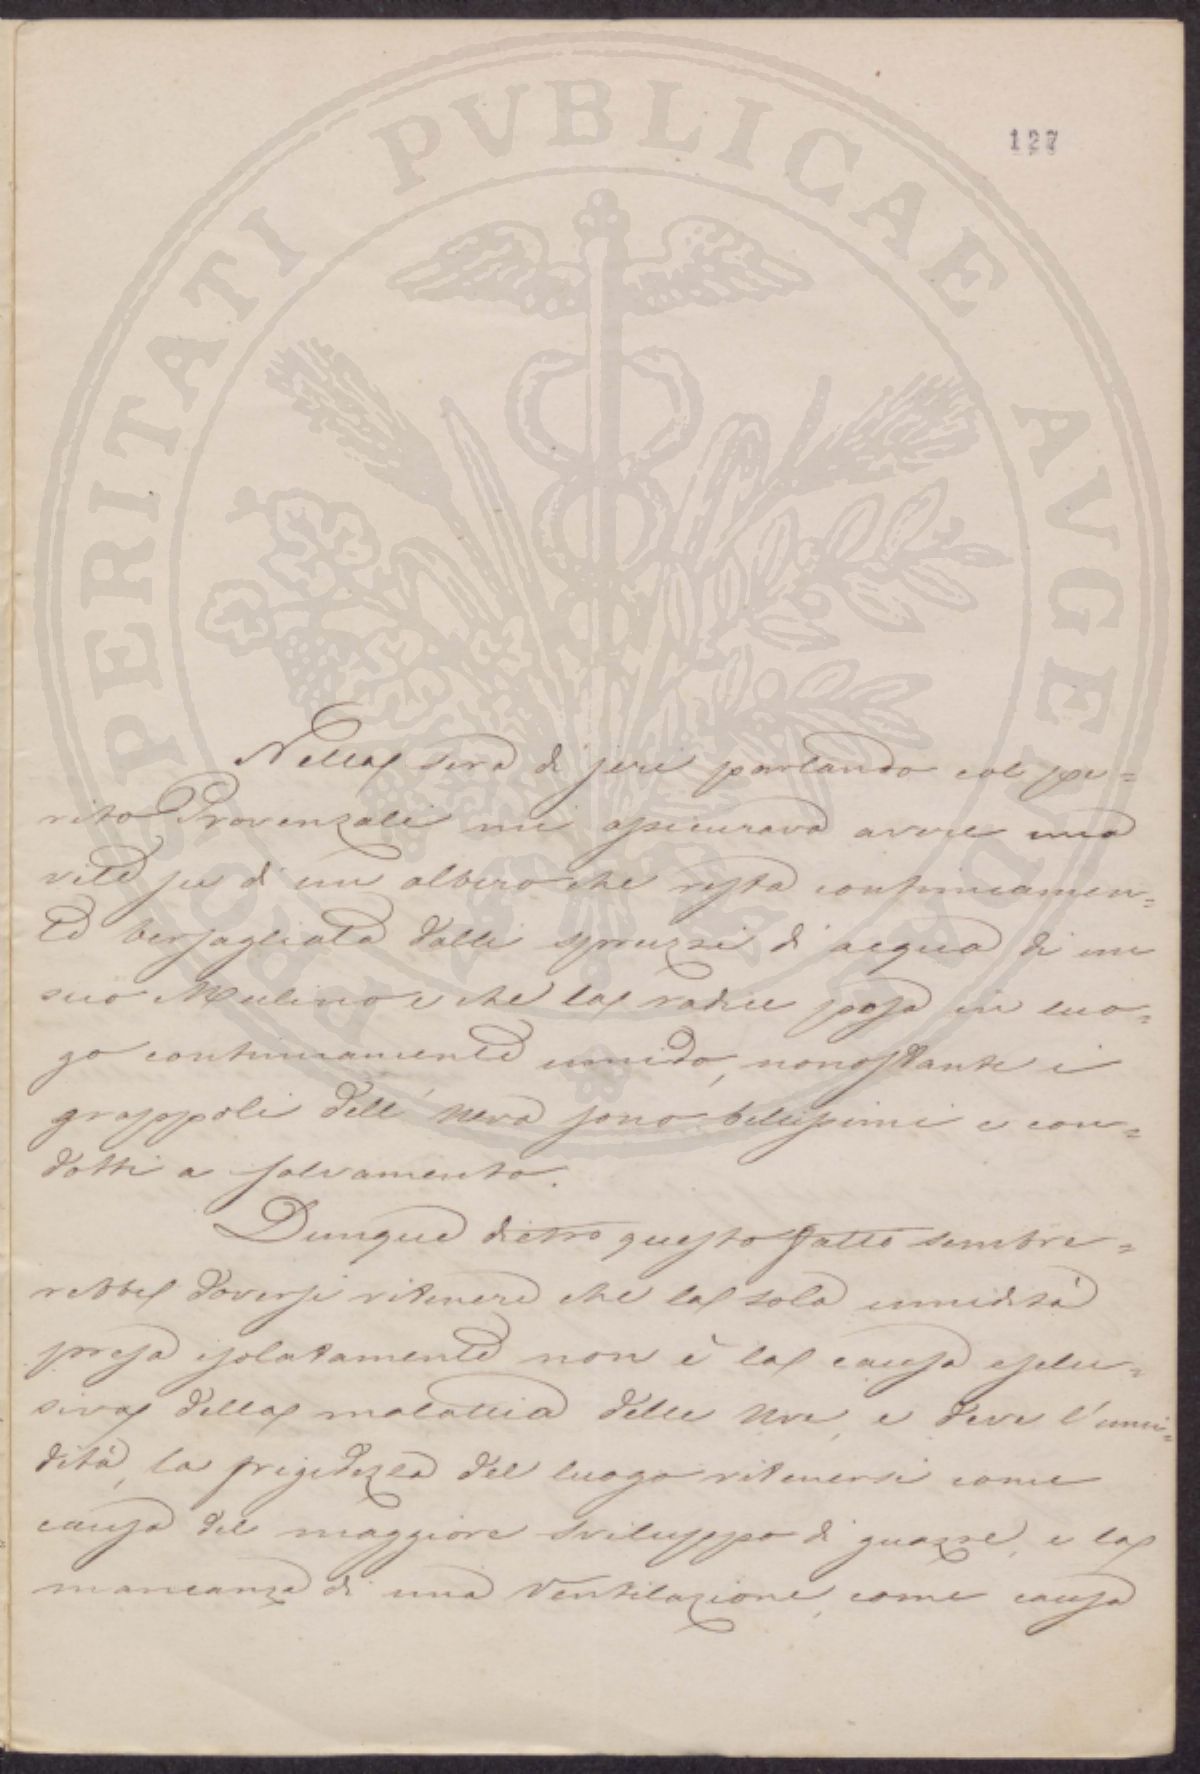 PROSPERITATI PVBLICAE AVGENDAE
127
Nella sera di jeri parlando col pe=
rito Provenzali mi assicurava avere una
vite su di un albero che resta continuamen=
te bersagliata dalli spruzzi di acqua di un
suo Mulino e che la radice posa in luo=
go continuamente umido, nonostante i
grappoli dell'Uva sono bellissimi e con=
dotti a salvamento.
Dunque dietro questo fatto sembre=
rebbe doversi ritenere che la sola umidità
presa isolatamente non è la causa esclu=
siva della malattia delle Uve, e deve l'umi=
dità, la frigidezza del luogo ritenersi come
causa del maggiore sviluppo di guazze, e la
mancanza di una Ventilazione, come causa